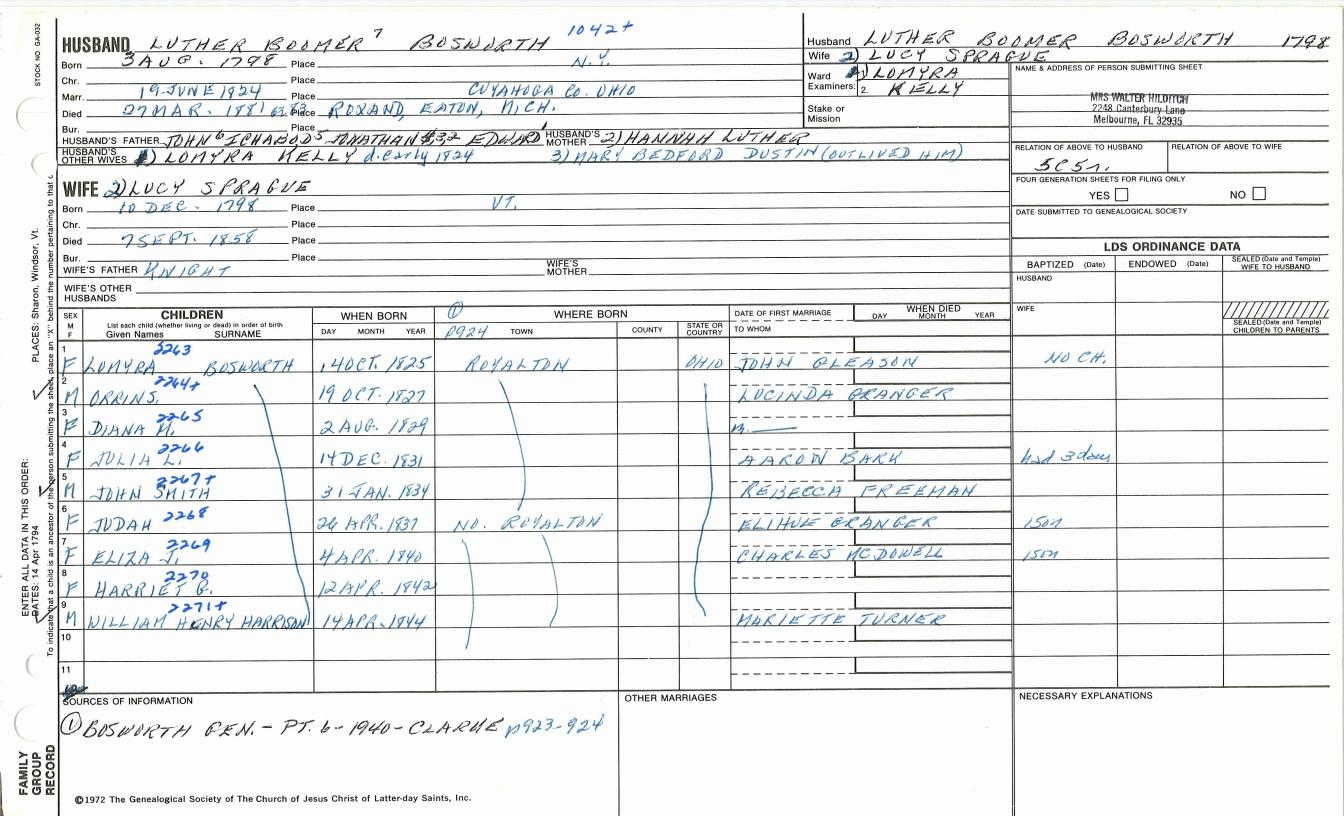 STOCK NO. GA-032
HUSBAND LUTHER BOOMER 7 BOSWORTH 1042+
Born 3 AUG. 1798 Place N.Y.
Chr. Place
Marr. 19 JUNE 1824 Place CUYAHOGA CO. OHIO
Died 27 MAR. 1881 Place ROXAND, EATON, MICH.
Bur. Place
HUSBAND'S FATHER JOHN 6 ICHABOD 5 JONATHAN EDWARD 1 HUSBAND'S MOTHER 2) HANNAH LUTHER
HUSBAND'S OTHER WIVES 1) LOMYRA KELLY d. early 1824 3) MARY BEDFORD DUSTIN (OUTLIVED HIM)
Husband LUTHER BOOMER BOSWORTH 1798
Wife 2) LUCY SPRAGUE
Ward 1) LOMYRA
Examiners: 2. KELLY
Stake or Mission
NAME & ADDRESS OF PERSON SUBMITTING SHEET
MRS WALTER HILDITCH
2248 Canterbury Lane
Melbourne, FL 32935
RELATION OF ABOVE TO HUSBAND RELATION OF ABOVE TO WIFE
5C5r.
FOUR GENERATION SHEETS FOR FILING ONLY
YES NO
DATE SUBMITTED TO GENEALOGICAL SOCIETY
WIFE 2) LUCY SPRAGUE
Born 10 DEC. 1798 Place VT.
Chr. Place
Died 7 SEPT. 1858 Place
Bur. Place
WIFE'S FATHER KNIGHT WIFE'S MOTHER
WIFE'S OTHER HUSBANDS
LDS ORDINANCE DATA
BAPTIZED (Date) ENDOWED (Date) SEALED (Date and Temple) WIFE TO HUSBAND
HUSBAND
WIFE
SEALED (Date and Temple) CHILDREN TO PARENTS
SEX M F CHILDREN WHEN BORN 1 WHERE BORN DATE OF FIRST MARRIAGE WHEN DIED
List each child (whether living or dead) in order of birth
Given Names SURNAME DAY MONTH YEAR p924 TOWN COUNTY STATE OR COUNTRY TO WHOM DAY MONTH YEAR
1 2263
F LOMYRA BOSWORTH 14 OCT. 1825 ROYALTON OHIO JOHN GLEASON NO CH.
2 2264+
M ORRIN S. 19 OCT. 1827 LUCINDA GRANGER
3 2265
F DIANA M. 2 AUG. 1829 m.
4 2266
F JULIA L. 14 DEC. 1831 AARON BARK had 3 daus
5 2267+
M JOHN SMITH 31 JAN. 1834 REBECCA FREEMAN
6
F JUDAH 2268 26 APR. 1837 NO. ROYALTON ELIHUE GRANGER 1 son
7 2269
F ELIZA J. 4 APR. 1840 CHARLES MCDOWELL 1 son
8 2270
F HARRIET G. 12 APR. 1842
9 2271+
M WILLIAM HENRY HARRISON 14 APR. 1844 MARIETTE TURNER
10
11
SOURCES OF INFORMATION
1 BOSWORTH GEN. - PT. 6 - 1940 - CLARKE p923-924
OTHER MARRIAGES
NECESSARY EXPLANATIONS
©1972 The Genealogical Society of The Church of Jesus Christ of Latter-day Saints, Inc.
FAMILY GROUP RECORD
ENTER ALL DATA IN THIS ORDER:
DATES: 14 Apr 1794
PLACES: Sharon, Windsor, Vt.
To indicate that a child is an ancestor of the person submitting the sheet, place an "X" behind the number pertaining to that c